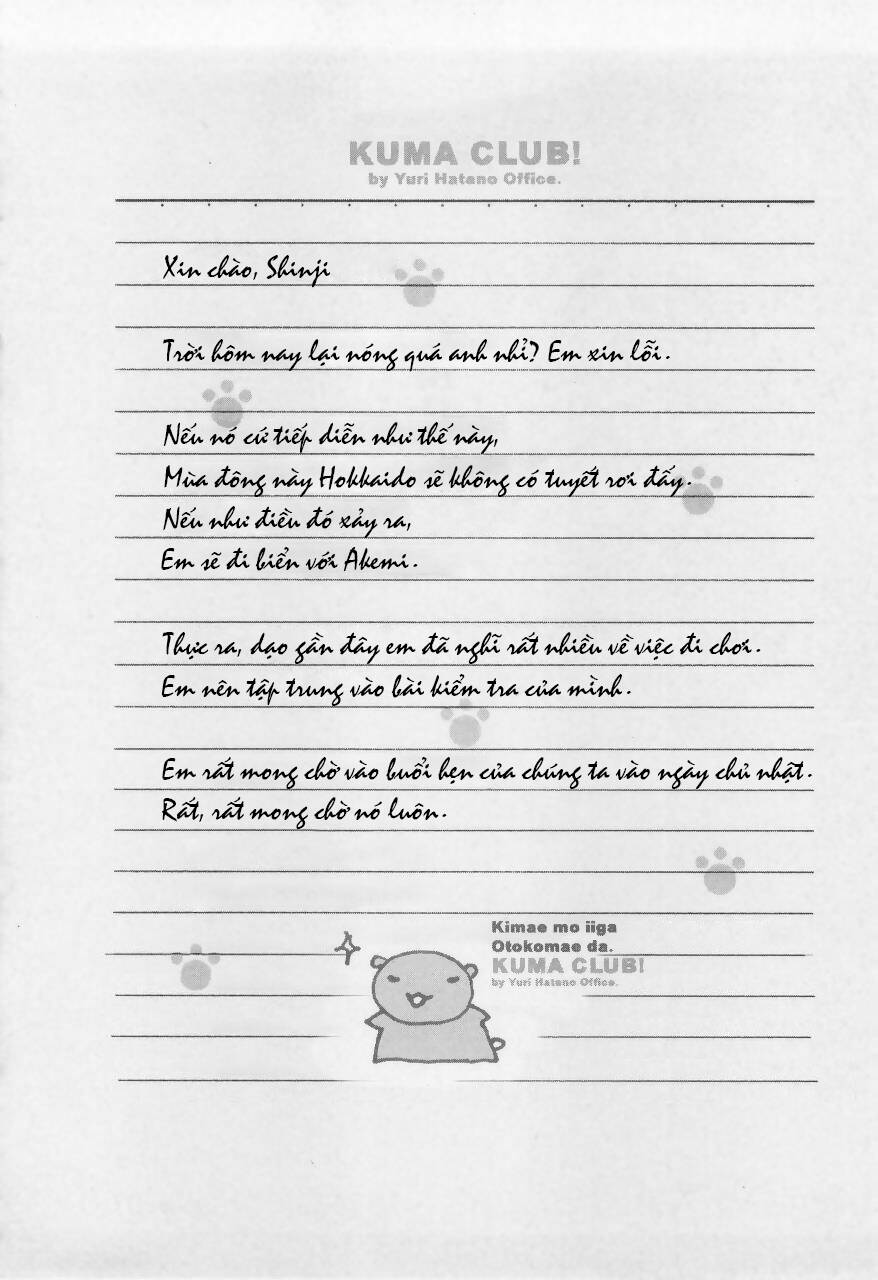 KUMA CLUB!
by Yuri Hatano Office.
Xin chào, Shinji
Trời hôm nay lại nóng quá anh nhỉ? Em xin lỗi.
Nếu nó cứ tiếp diễn như thế này,
Mùa đông này Hokkaido sẽ không có tuyết rơi đấy.
Nếu như điều đó xảy ra,
Em sẽ đi biển với Akemi.
Thực ra, dạo gần đây em đã nghĩ rất nhiều về việc đi chơi.
Em nên tập trung vào bài kiểm tra của mình.
Em rất mong chờ vào buổi hẹn của chúng ta vào ngày chủ nhật.
Rất, rất mong chờ nó luôn.
Kimae mo iiga
Otokomae da.
KUMA CLUB!
by Yuri Hatano Office.